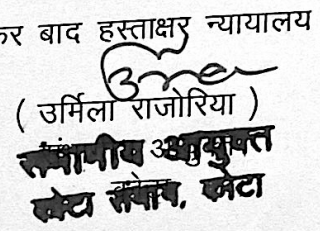 कर बाद हस्ताक्षर न्यायालय
( उर्मिला राजोरिया )
संभागीय आयुक्त
कोटा संभाग, कोटा